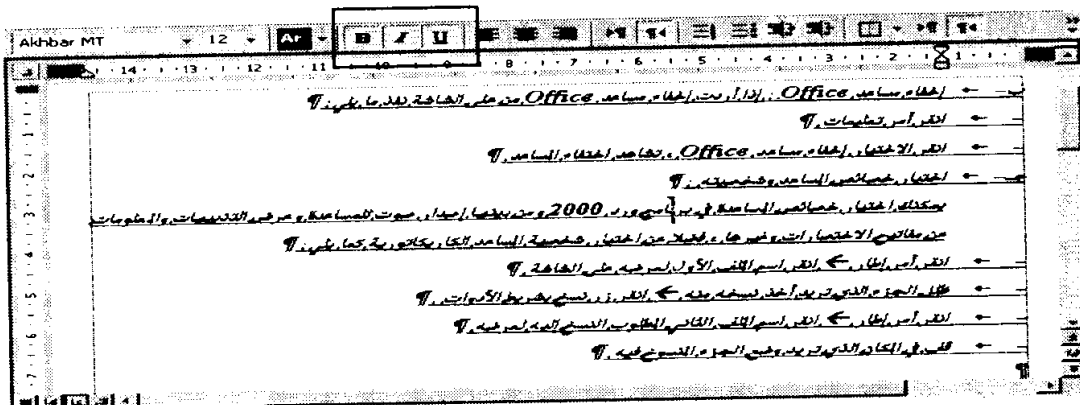 Akhbar MT 12 Ar B I U
14 13 12 11 10 9 8 7 6 5 4 3 2 1
إخفاء مساعد Office : إذا أردت إخفاء مساعد Office من على الشاشة نفذ ما يلي : ¶
انقر أمر تعليمات . ¶
انقر الاختيار إخفاء مساعد Office ، تشاهد اختفاء المساعد . ¶
اختيار خصائص المساعد وشخصيته : ¶
يمكنك اختيار خصائص المساعدة في برنامج ورد 2000 ومن بينها إصدار صوت للمساعدة وعرض التنبيهات والمعلومات
عن مفاتيح الاختصارات وغيرها ، فضلا عن اختيار شخصية المساعد الكاريكاتورية كما يلي : ¶
انقر أمر إطار ← انقر اسم الملف الأول لعرضه على الشاشة . ¶
ظلل الجزء الذي تريد أخذ نسخه منه ← انقر زر نسخ بشريط الأدوات . ¶
انقر أمر إطار ← انقر اسم الملف الثاني المطلوب النسخ إليه لعرضه . ¶
قف في المكان الذي تريد وضع الجزء المنسوخ فيه . ¶
¶